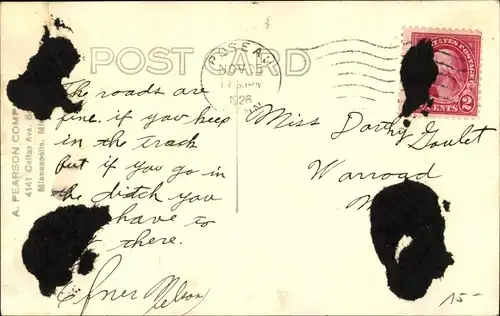 POST CARD
ROSEAU
NOV 9
1926
UNITED STATES POSTAGE
2 CENTS 2
A. PEARSON COMP
4141 Colfax Ave. So
Minneapolis, Mi
The roads are
fine if you keep
in the track
but if you go in
the ditch you
have to
there.
Efner Nelson
Miss Dorthy Goulet
Warroad
M
15-